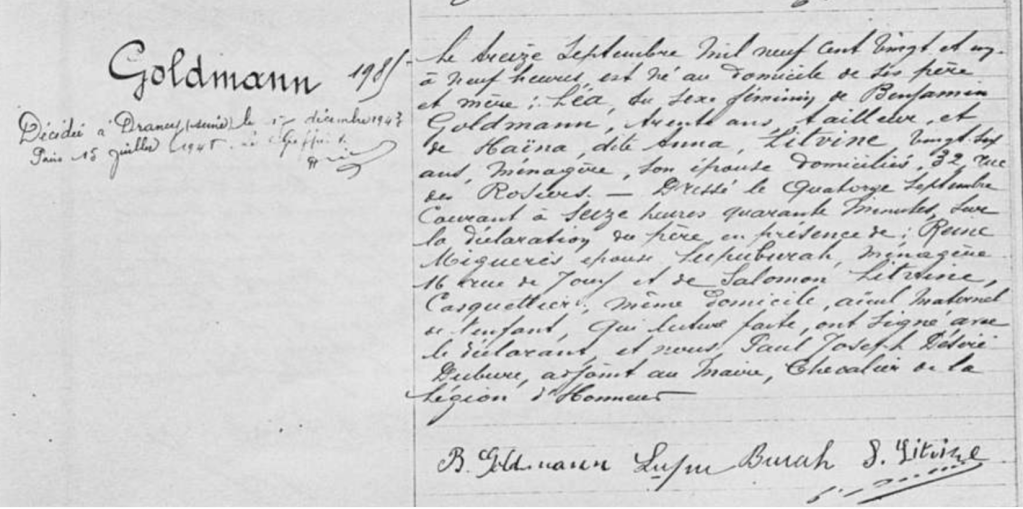 Goldmann 1985
Décédée à Drancy (seine) le décembre 1943
Paris 15 juillet 1945 Le Greffier
Le treize Septembre Mil neuf cent vingt et un
à Neuf heures, est né au domicile de ses père
et mère : Léa, du sexe féminin de Benjamin
Goldmann, trente ans, tailleur, et
de Haïna, dite Anna, Litvine, vingt-six
ans, Ménagère, son épouse domiciliés, 32, rue
des Rosiers. — Dressé le Quatorze Septembre
Courant à Seize heures quarante Minutes, sur
la déclaration du père, en présence de : Reine
Miguerès épouse Lupuburah, Ménagère
16 rue de Jouy et de Salomon Litvine,
Casquettier, même domicile, aïeul Maternel
de l'enfant, Qui lecture faite, ont signé avec
le déclarant, et nous, Paul Joseph Désiré
Dubure, adjoint au Maire, Chevalier de la
Légion d'Honneur
B. Goldmann Lupu Burah S. Litvine